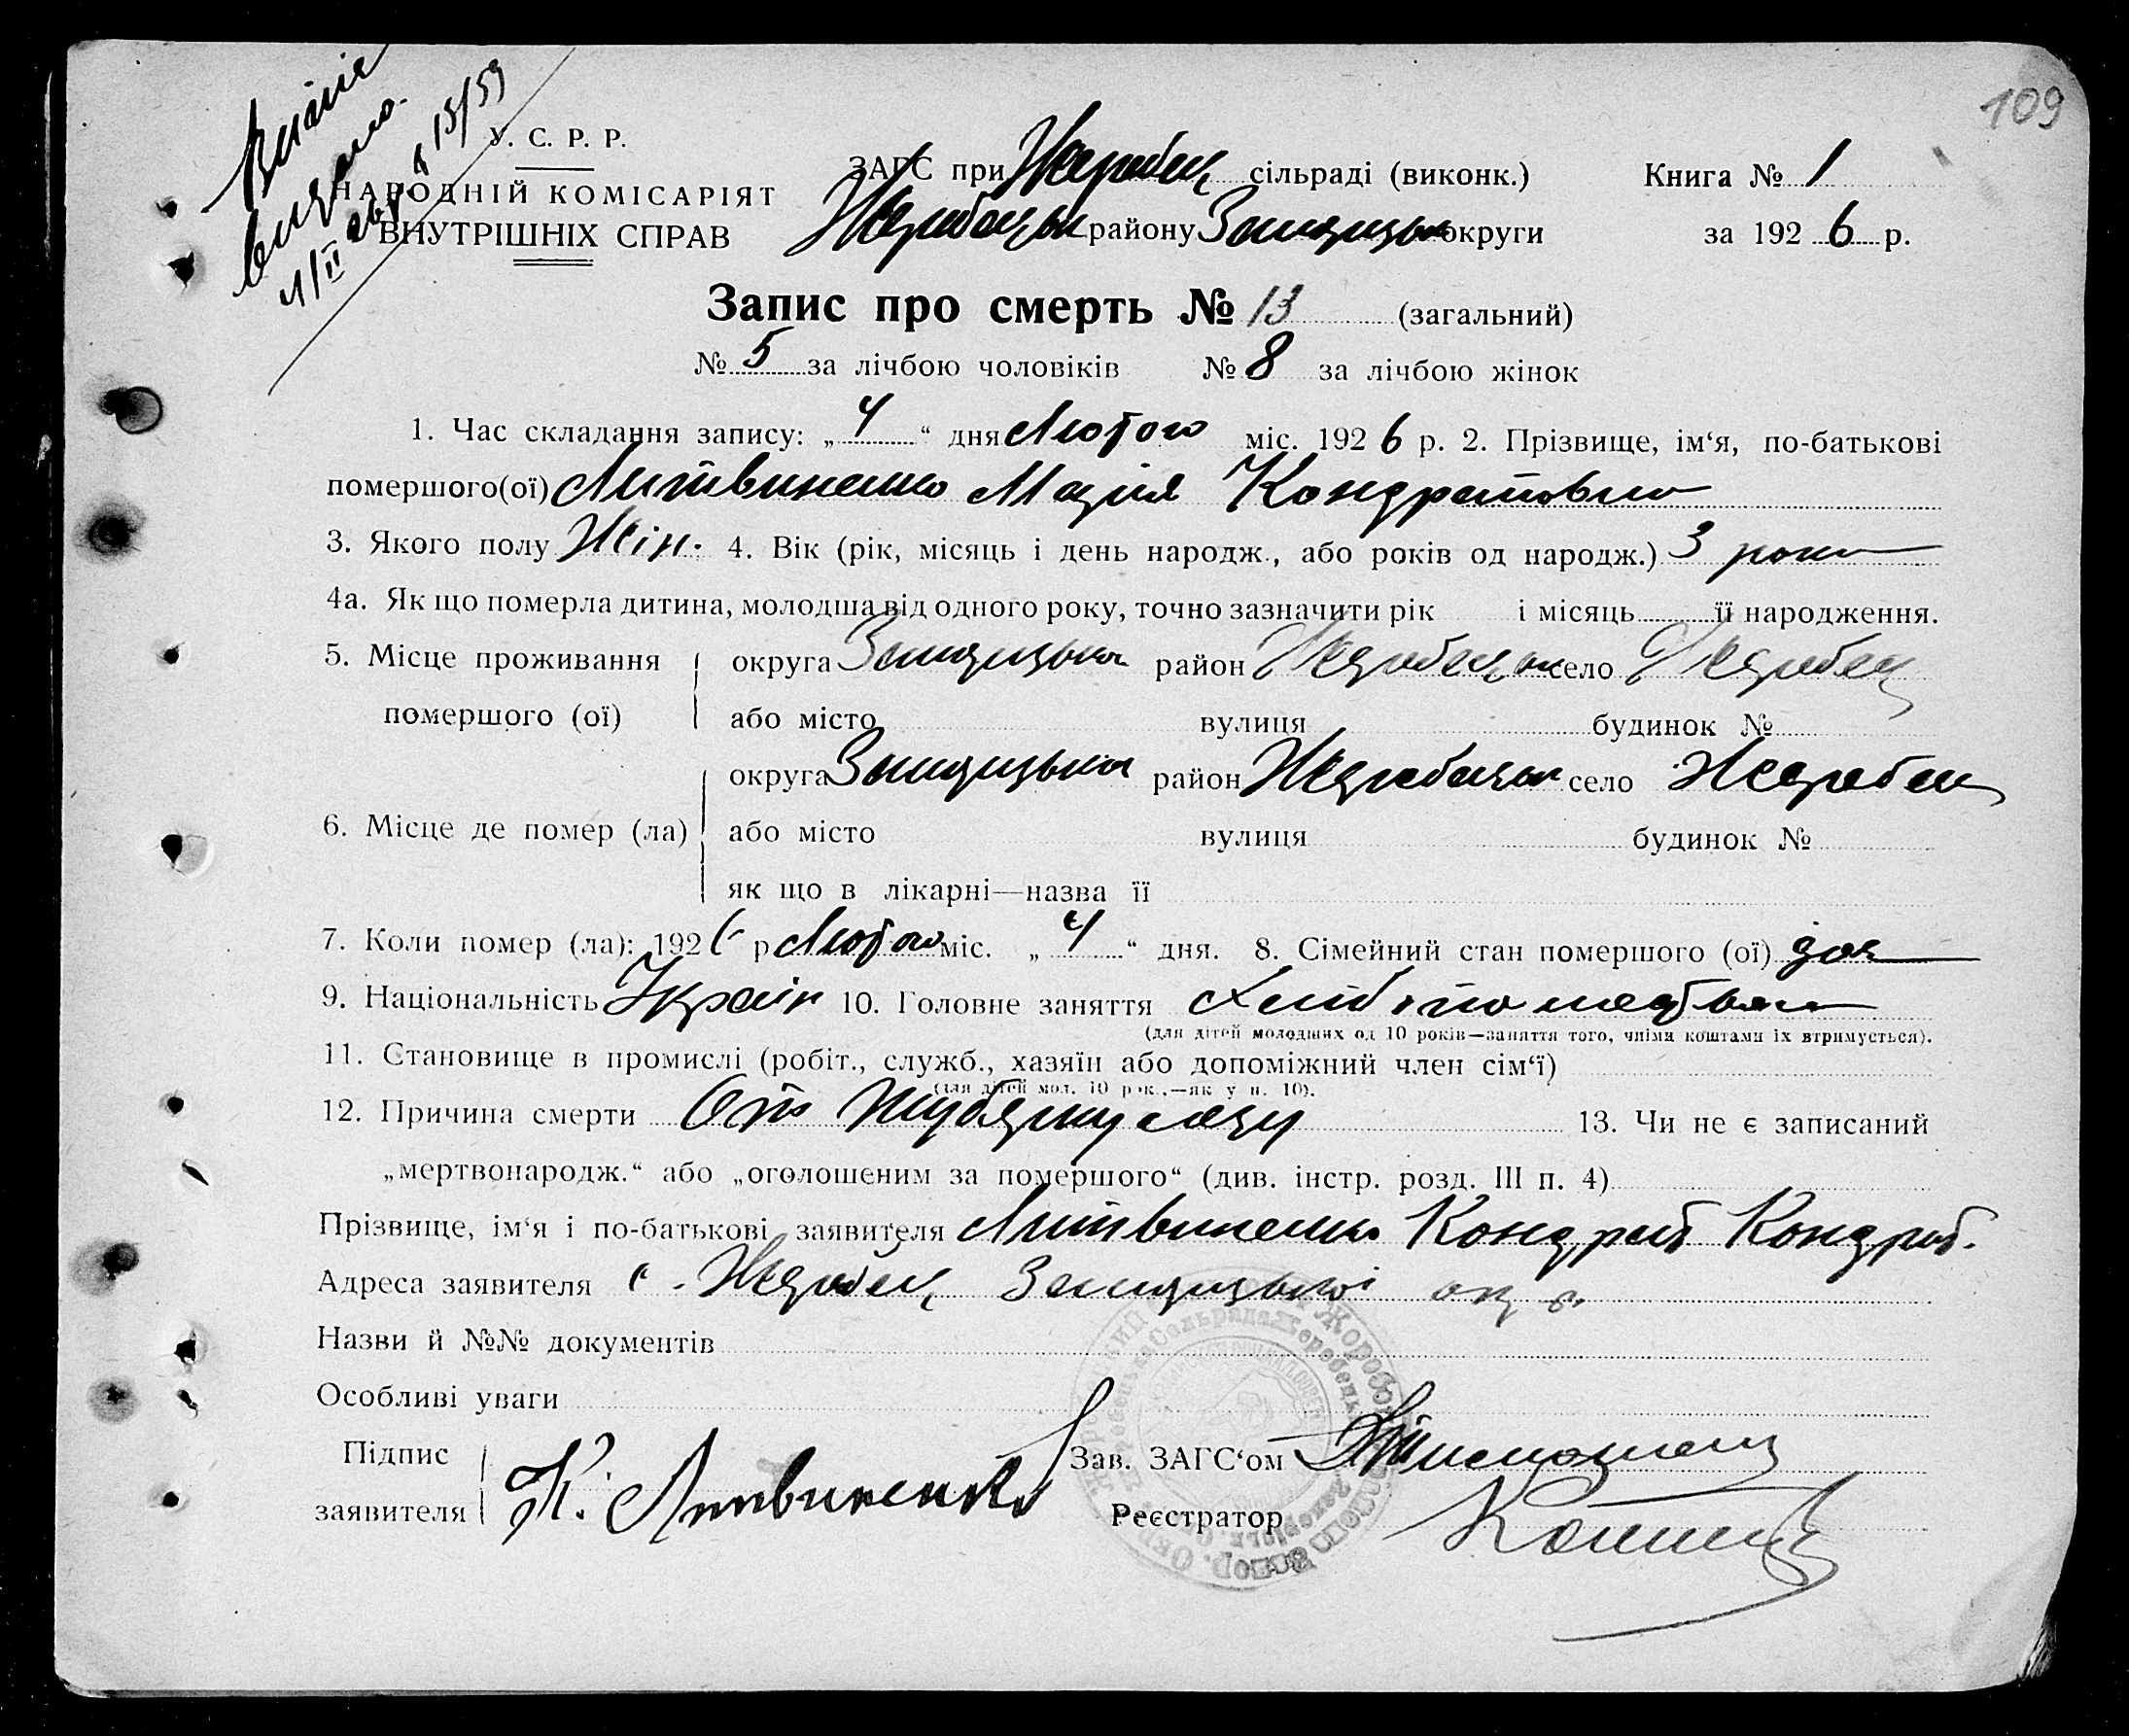 109
Виписка
видана
У. С. Р. Р.
НАРОДНІЙ КОМІСАРІЯТ
ВНУТРІШНІХ СПРАВ
ЗАГС при Жеребец сільраді (виконк.)
Книга № 1
Жеребецьк району Запорізьк округи
за 1926 р.
Запис про смерть № 13 (загальний)
№ 5 за лічбою чоловіків № 8 за лічбою жінок
1. Час складання запису: „ 4 “ дня Лютого міс. 1926 р. 2. Прізвище, ім‘я, по-батькові
помершого(ої) Литвиненко Марія Кондратовна
3. Якого полу Жін. 4. Вік (рік, місяць і день народж., або років од народж.) 3 роки
4а. Як що померла дитина, молодша від одного року, точно зазначити рік і місяць її народження.
5. Місце проживання округа Запорізька район Жеребецьк село Жеребец
помершого (ої) або місто вулиця будинок №
округа Запорізька район Жеребецьк село Жеребец
6. Місце де помер (ла) або місто вулиця будинок №
як що в лікарні—назва її
7. Коли помер (ла): 1926 р Лютого міс. „ 4 “ дня. 8. Сімейний стан помершого (ої)
9. Національність Україн 10. Головне заняття
(для дітей молодших од 10 років—заняття того, чиїми коштами їх втримується).
11. Становище в промислі (робіт., служб., хазяїн або допоміжний член сім‘ї)
(для дітей мол. 10 рок.,—як у п. 10).
12. Причина смерти От туберкулезу 13. Чи не є записаний
„мертвонародж.“ або „оголошеним за помершого“ (див. інстр. розд. III п. 4)
Прізвище, ім‘я і по-батькові заявителя Литвиненко Кондрат Кондрат.
Адреса заявителя с. Жеребец Запорізької окр.
Назви й №№ документів
Особливі уваги
Підпис
заявителя К. Литвиненко
Зав. ЗАГС‘ом
Реєстратор